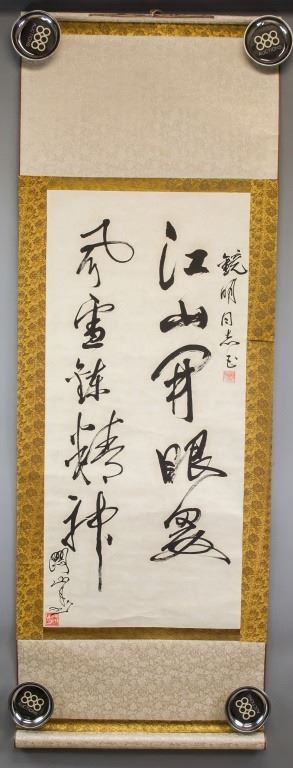 鏡明同志正
江山開眼界
風雪鍊精神
關山月
888
AUCTIONS
888
AUCTIONS